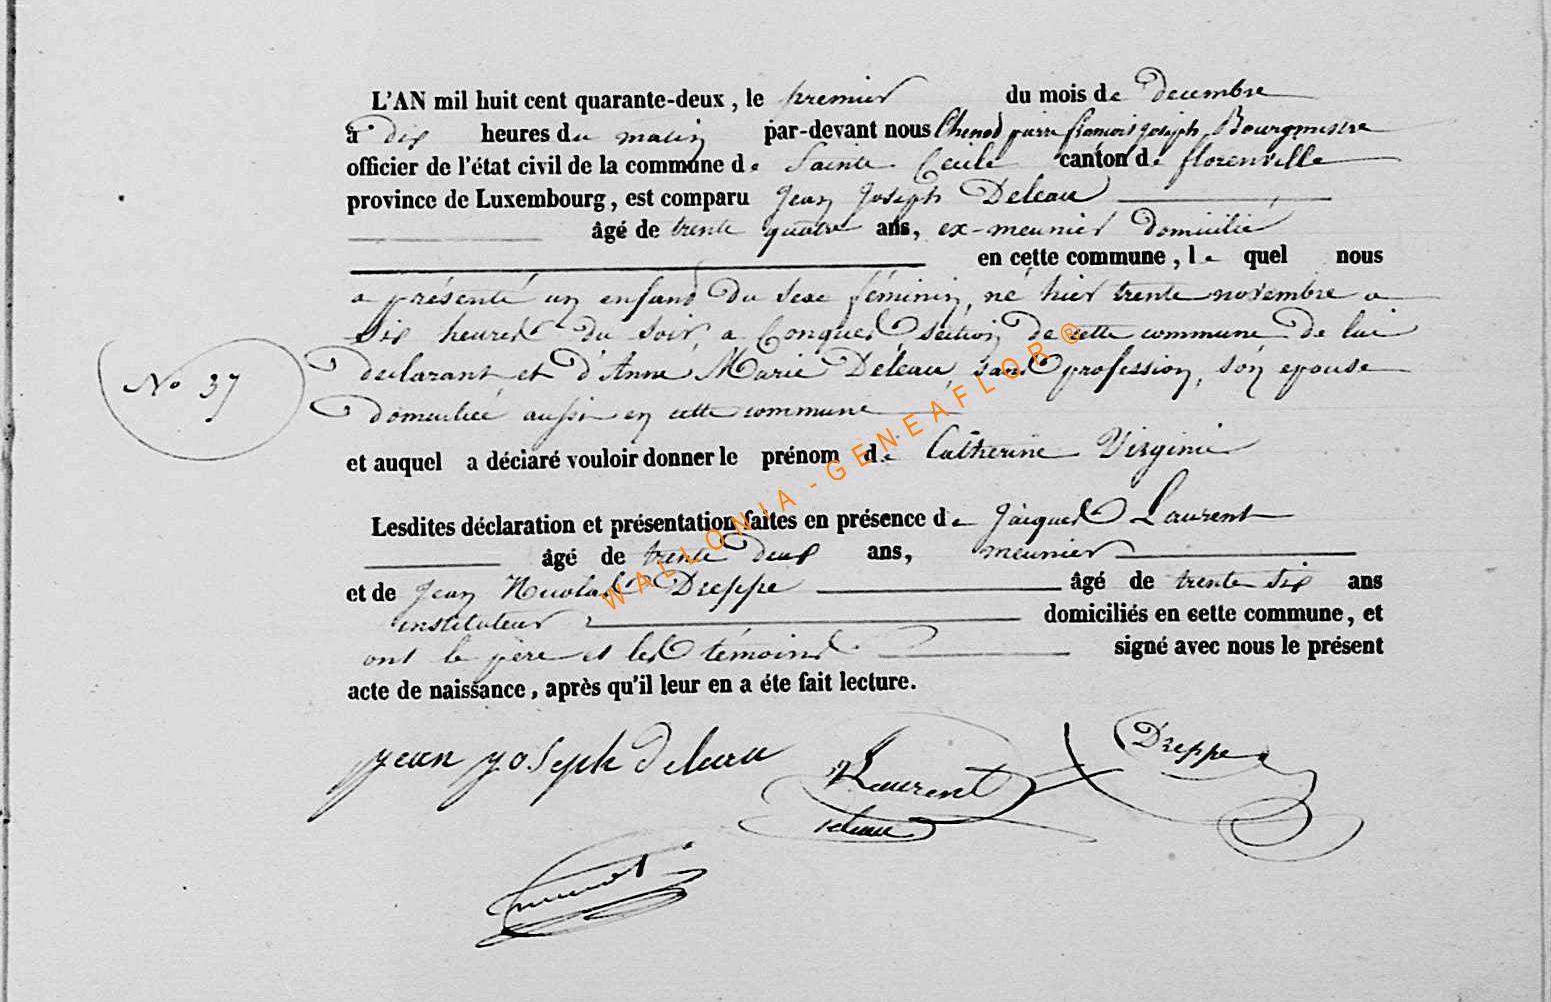 L'AN mil huit cent quarante-deux, le premier du mois de decembre
à dix heures du matin par-devant nous Chenot pierre françois joseph, Bourgmestre
officier de l'état civil de la commune de Sainte Cecile canton de florenville
province de Luxembourg, est comparu Jean Joseph Deleau
âgé de trente quatre ans, ex-meunier domicilié
en cette commune, le quel nous
a présenté un enfant du sexe féminin, né hier trente novembre a
six heures du soir, a Conques section de cette commune de lui
declarant et d'Anne Marie Deleau, sans profession, son epouse
domiciliée aussi en cette commune
No 37
et auquel a déclaré vouloir donner le prénom de Catherine Virginie
Lesdites déclaration et présentation faites en présence de Jacques Laurent
âgé de trente deux ans, meunier
et de Jean Nicolas Dreppe âgé de trente six ans
instituteur domiciliés en cette commune, et
ont le père et les témoins signé avec nous le présent
acte de naissance, après qu'il leur en a éte fait lecture.
jean joseph deleau
Laurent
Dreppe
WALLONIA - GENEAFLOR ®